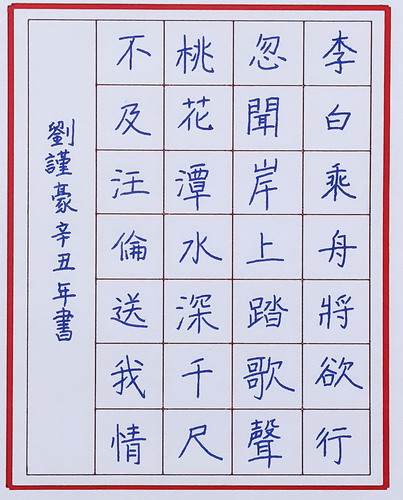 李白乘舟將欲行
忽聞岸上踏歌聲
桃花潭水深千尺
不及汪倫送我情
劉謹豪辛丑年書